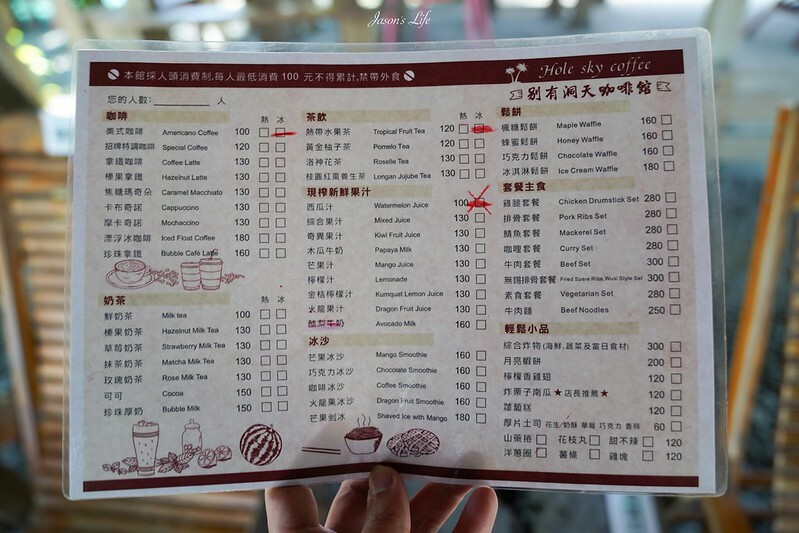 Jason's Life
本館採人頭消費制,每人最低消費 100 元不得累計,禁帶外食
Hole sky coffee
别有洞天咖啡館
您的人數: 人
咖啡 熱 冰
美式咖啡 Americano Coffee 100
招牌特調咖啡 Special Coffee 120
拿鐵咖啡 Coffee Latte 130
榛果拿鐵 Hazelnut Latte 130
焦糖瑪奇朵 Caramel Macchiato 130
卡布奇諾 Cappuccino 130
摩卡奇諾 Mochaccino 130
漂浮冰咖啡 Iced Float Coffee 180
珍珠拿鐵 Bubble Cafe Latte 160
奶茶 熱 冰
鮮奶茶 Milk tea 100
榛果奶茶 Hazelnut Milk Tea 130
草莓奶茶 Strawberry Milk Tea 130
抹茶奶茶 Matcha Milk Tea 130
玫瑰奶茶 Rose Milk Tea 130
可可 Cocoa 150
珍珠厚奶 Bubble Milk 150
茶飲 熱 冰
熱帶水果茶 Tropical Fruit Tea 120
黃金柚子茶 Pomelo Tea 120
洛神花茶 Roselle Tea 130
桂圓紅棗養生茶 Longan Jujube Tea 130
現榨新鮮果汁
西瓜汁 Watermelon Juice 100
綜合果汁 Mixed Juice 130
奇異果汁 Kiwi Fruit Juice 130
木瓜牛奶 Papaya Milk 130
芒果汁 Mango Juice 130
檸檬汁 Lemonade 130
金桔檸檬汁 Kumquat Lemon Juice 130
火龍果汁 Dragon Fruit Juice 130
酪梨牛奶 Avocado Milk 160
冰沙
芒果冰沙 Mango Smoothie 160
巧克力冰沙 Chocolate Smoothie 160
咖啡冰沙 Coffee Smoothie 160
火龍果冰沙 Dragon Fruit Smoothie 160
芒果剉冰 Shaved Ice with Mango 180
鬆餅
楓糖鬆餅 Maple Waffle 160
蜂蜜鬆餅 Honey Waffle 160
巧克力鬆餅 Chocolate Waffle 160
冰淇淋鬆餅 Ice Cream Waffle 180
套餐主食
雞腿套餐 Chicken Drumstick Set 280
排骨套餐 Pork Ribs Set 280
鯖魚套餐 Mackerel Set 280
咖哩套餐 Curry Set 280
牛肉套餐 Beef Set 300
無錫排骨套餐 Fried Spare Ribs, Wuxi Style Set 300
素食套餐 Vegetarian Set 280
牛肉麵 Beef Noodles 250
輕鬆小品
綜合炸物 (海鮮,蔬菜及當日食材) 300
月亮蝦餅 200
檸檬香雞翅 120
炸栗子南瓜★店長推薦★ 120
蘿蔔糕 120
厚片土司 花生/奶酥 草莓 巧克力 香蒜 60
山藥捲 花枝丸 甜不辣 120
洋蔥圈 薯條 雞塊 120